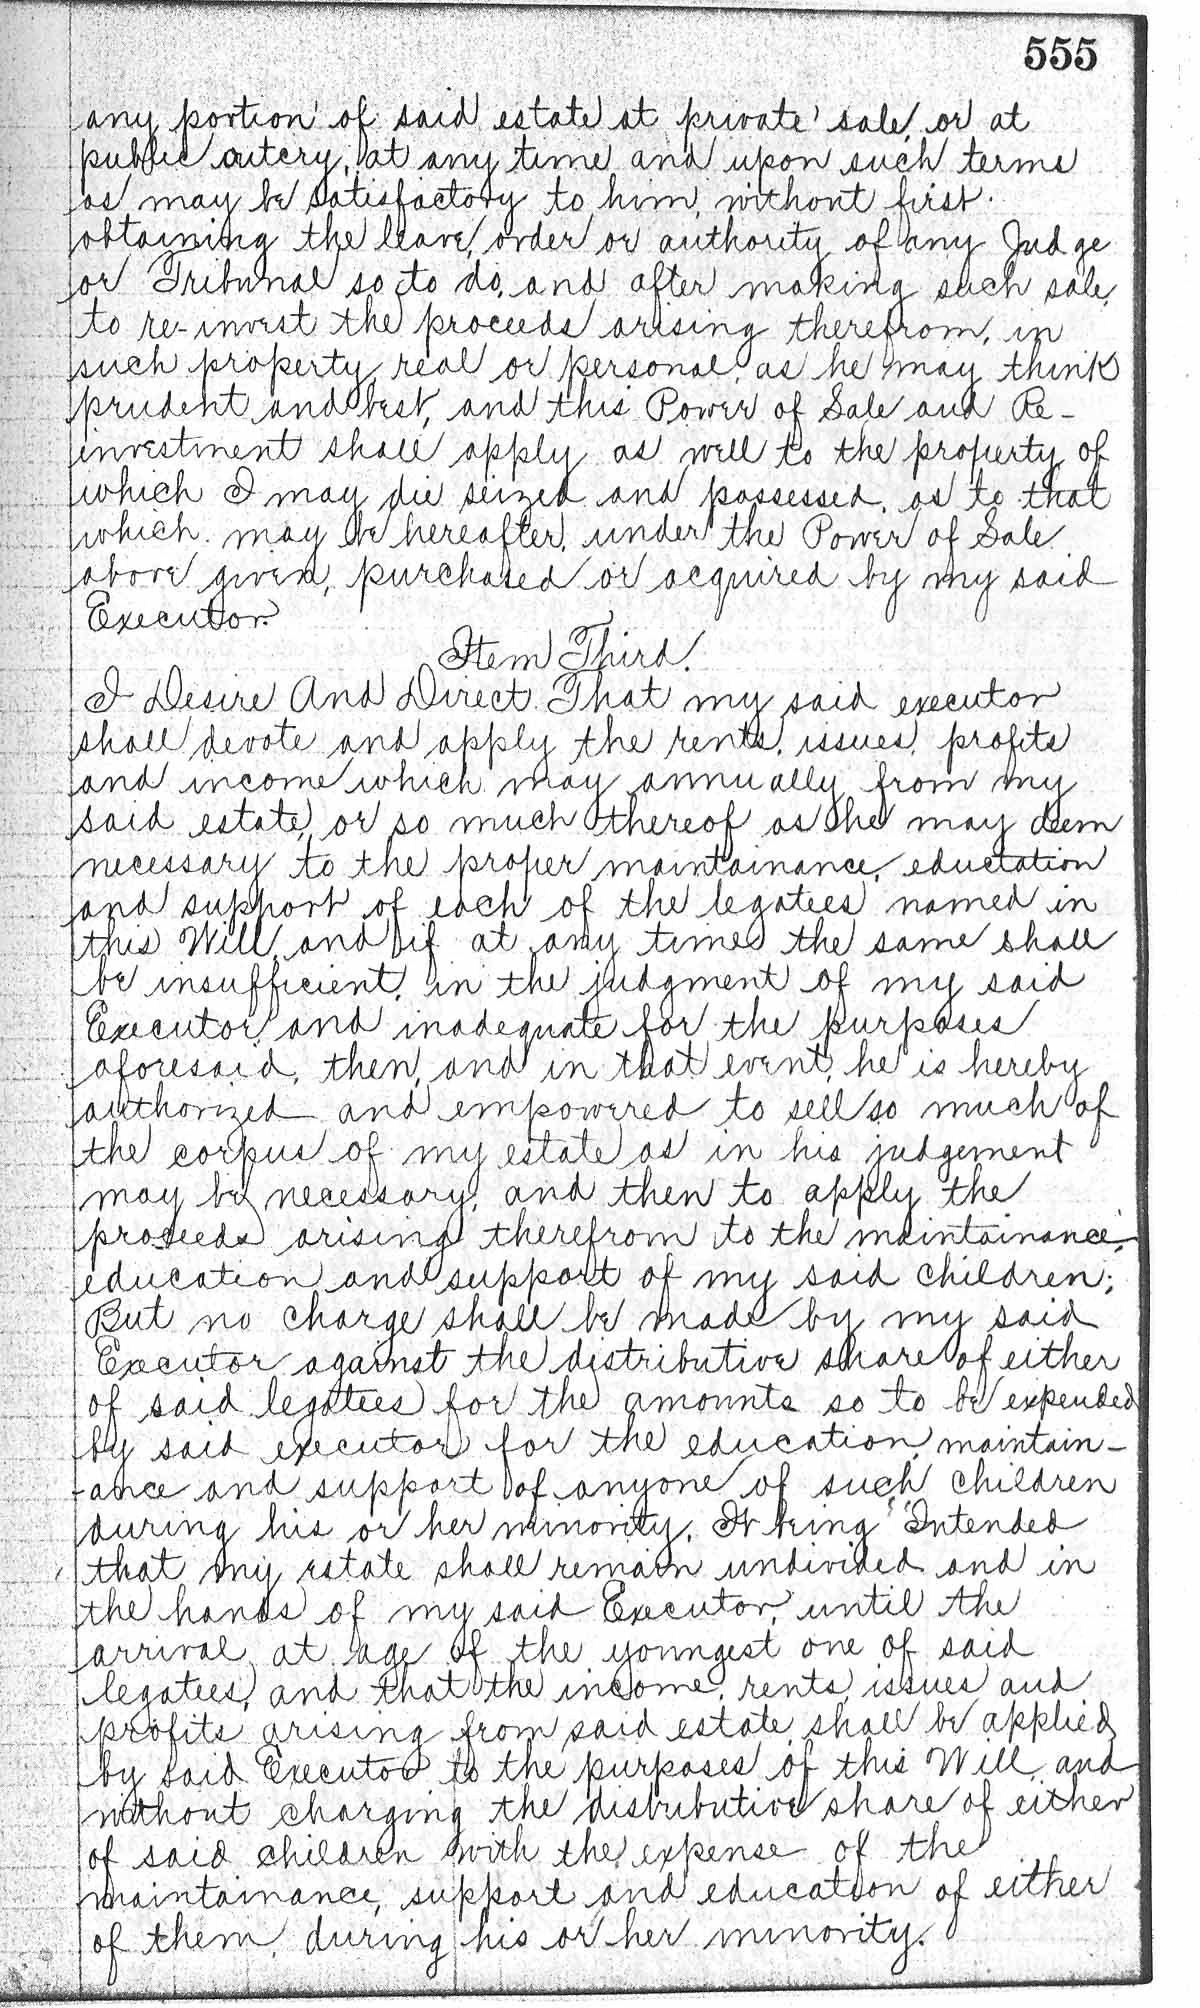 555
any portion of said estate at private sale, or at
public outcry, at any time and upon such terms
as may be satisfactory to him, without first
obtaining the leave, order or authority of any Judge
or Tribunal so to do, and after making such sale,
to re-invest the proceeds arising therefrom, in
such property, real or personal, as he may think
prudent and best, and this Power of Sale and Re-
investment shall apply as well to the property of
which I may die seized and possessed, as to that
which may be hereafter, under the Power of Sale
above given, purchased or acquired by my said
Executor.
Item Third.
I Desire And Direct That my said executor
shall devote and apply the rents, issues, profits
and income which may annually from my
said estate, or so much thereof as he may deem
necessary to the proper maintainance, eductation
and support of each of the legatees named in
this Will, and if at any time the same shall
be insufficient, in the judgment of my said
Executor, and inadequate for the purposes
aforesaid, then, and in that event, he is hereby
authorized and empowered to sell so much of
the corpus of my estate as in his judgement
may be necessary, and then to apply the
proceeds arising therefrom to the maintainance,
education and support of my said children;
But no charge shall be made by my said
Executor against the distributive share of either
of said legatees for the amounts so to be expended
by said executor for the education, maintain-
-ance and support of anyone of such children
during his or her minority. It being Intended
that my estate shall remain undivided and in
the hands of my said Executor, until the
arrival at age of the youngest one of said
legatees, and that the income, rents, issues and
profits arising from said estate shall be applied
by said Executor to the purposes of this Will, and
without charging the distributive share of either
of said children with the expense of the
maintainance, support and education of either
of them, during his or her minority.